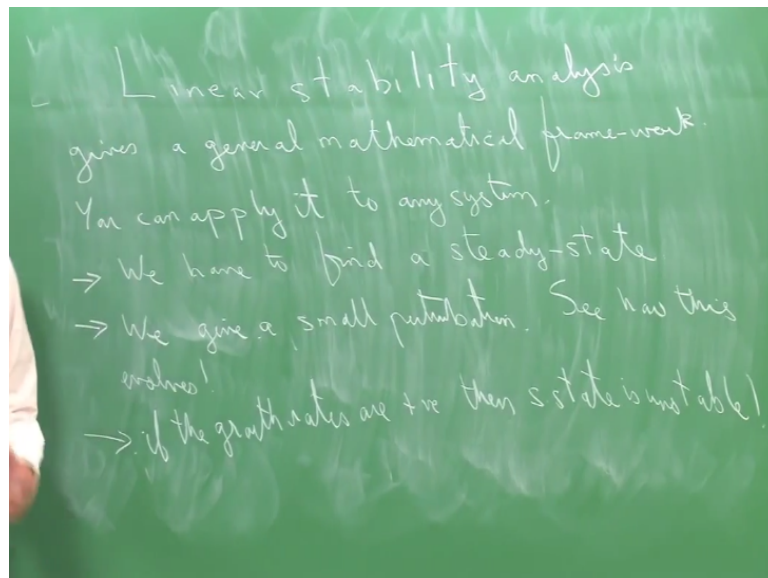 Linear stability analysis
gives a general mathematical frame-work.
You can apply it to any system.
→ We have to find a steady-state
→ We give a small perturbation. See how this
evolves!
→ if the growth rates are +ve then s state is unstable!